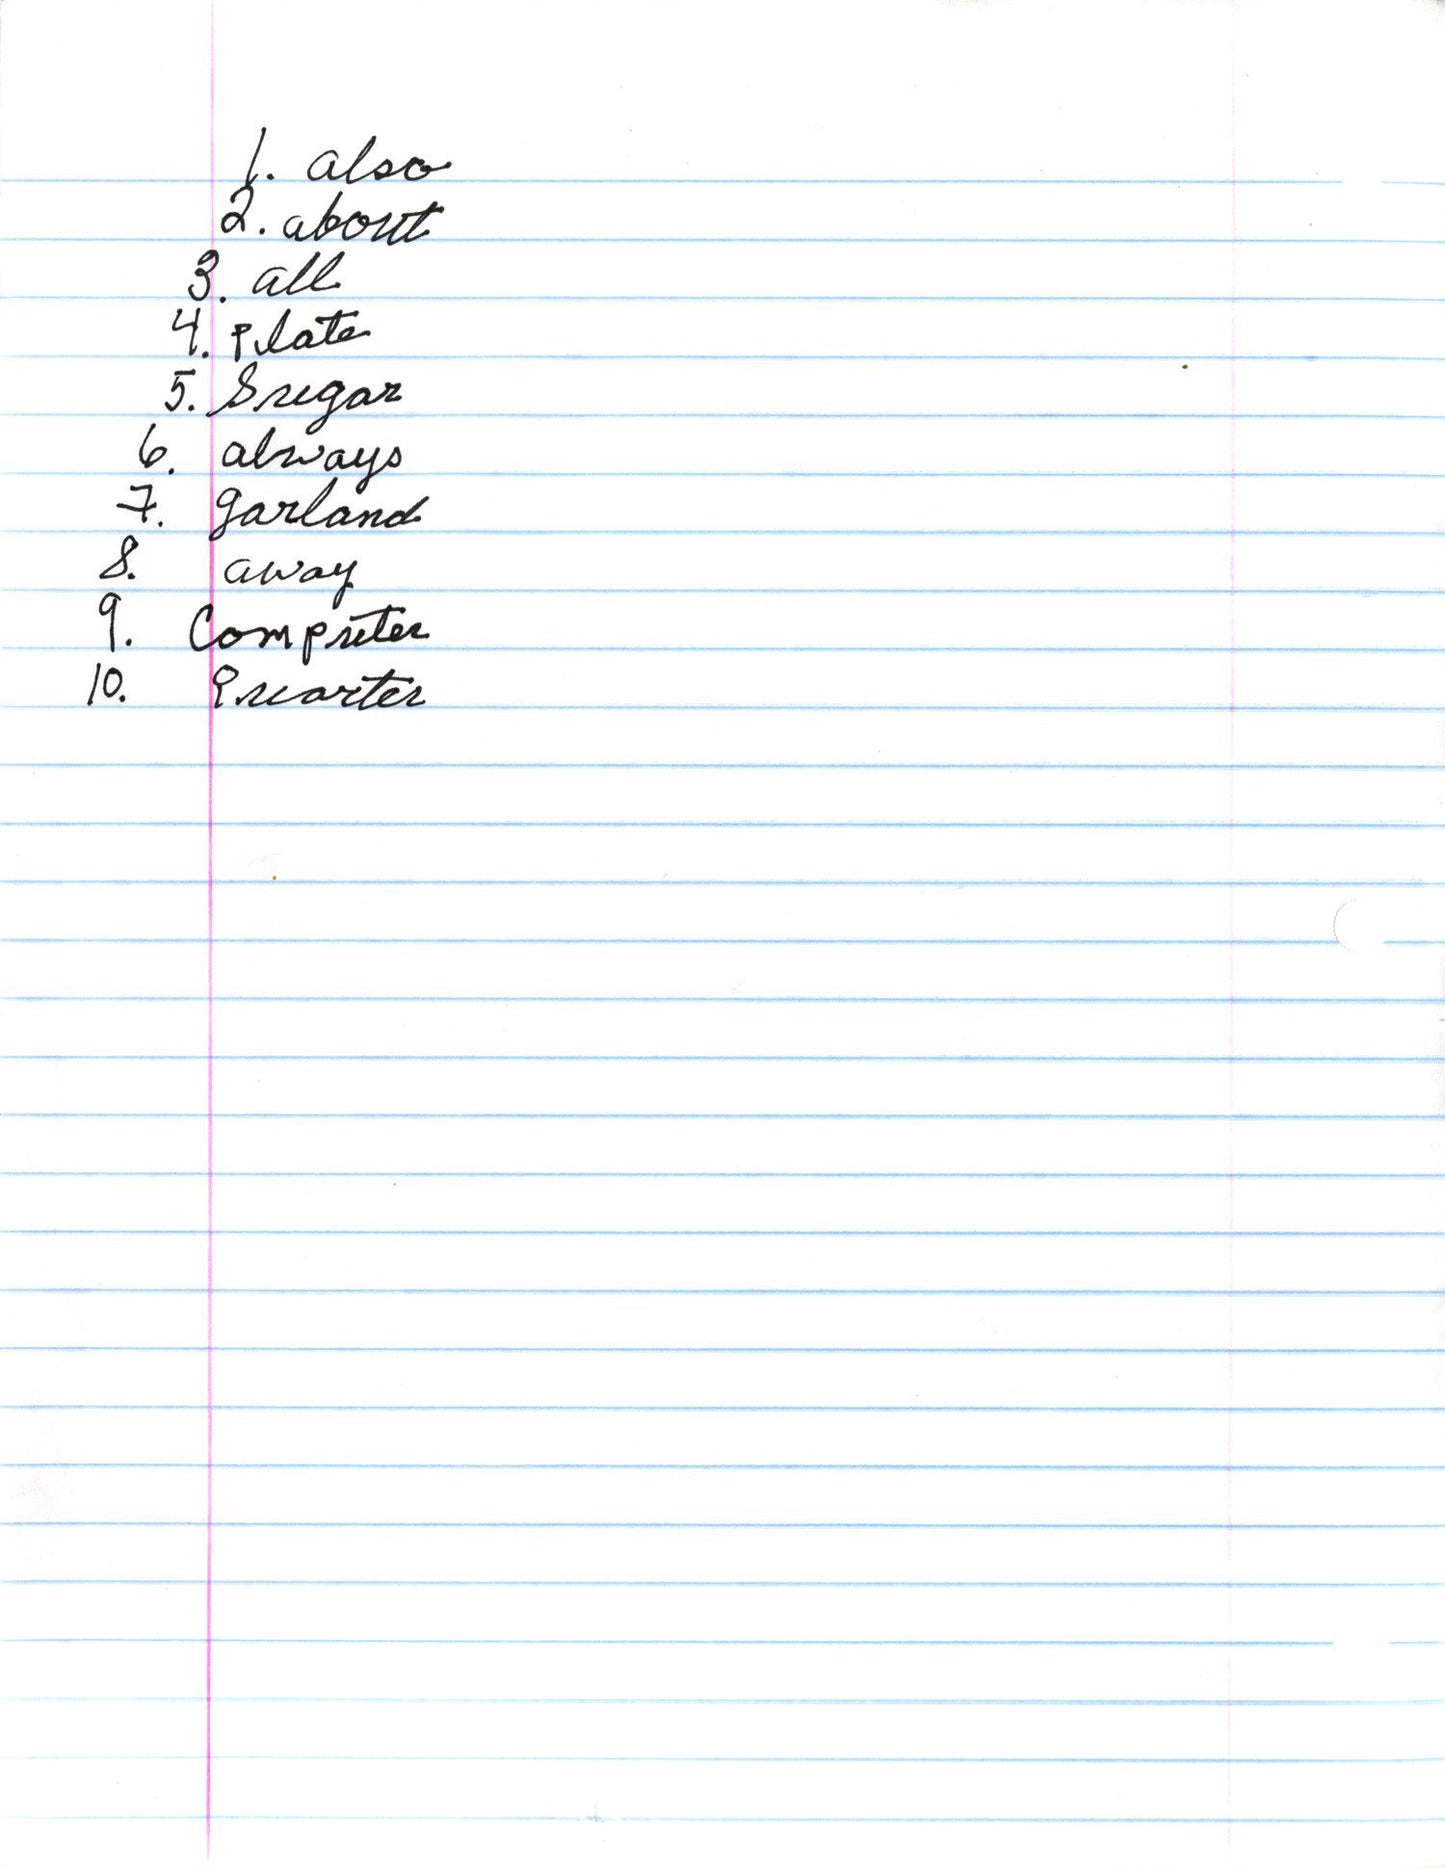 1. also
2. about
3. all
4. plate
5. Sugar
6. always
7. garland
8. away
9. Computer
10. Quarter